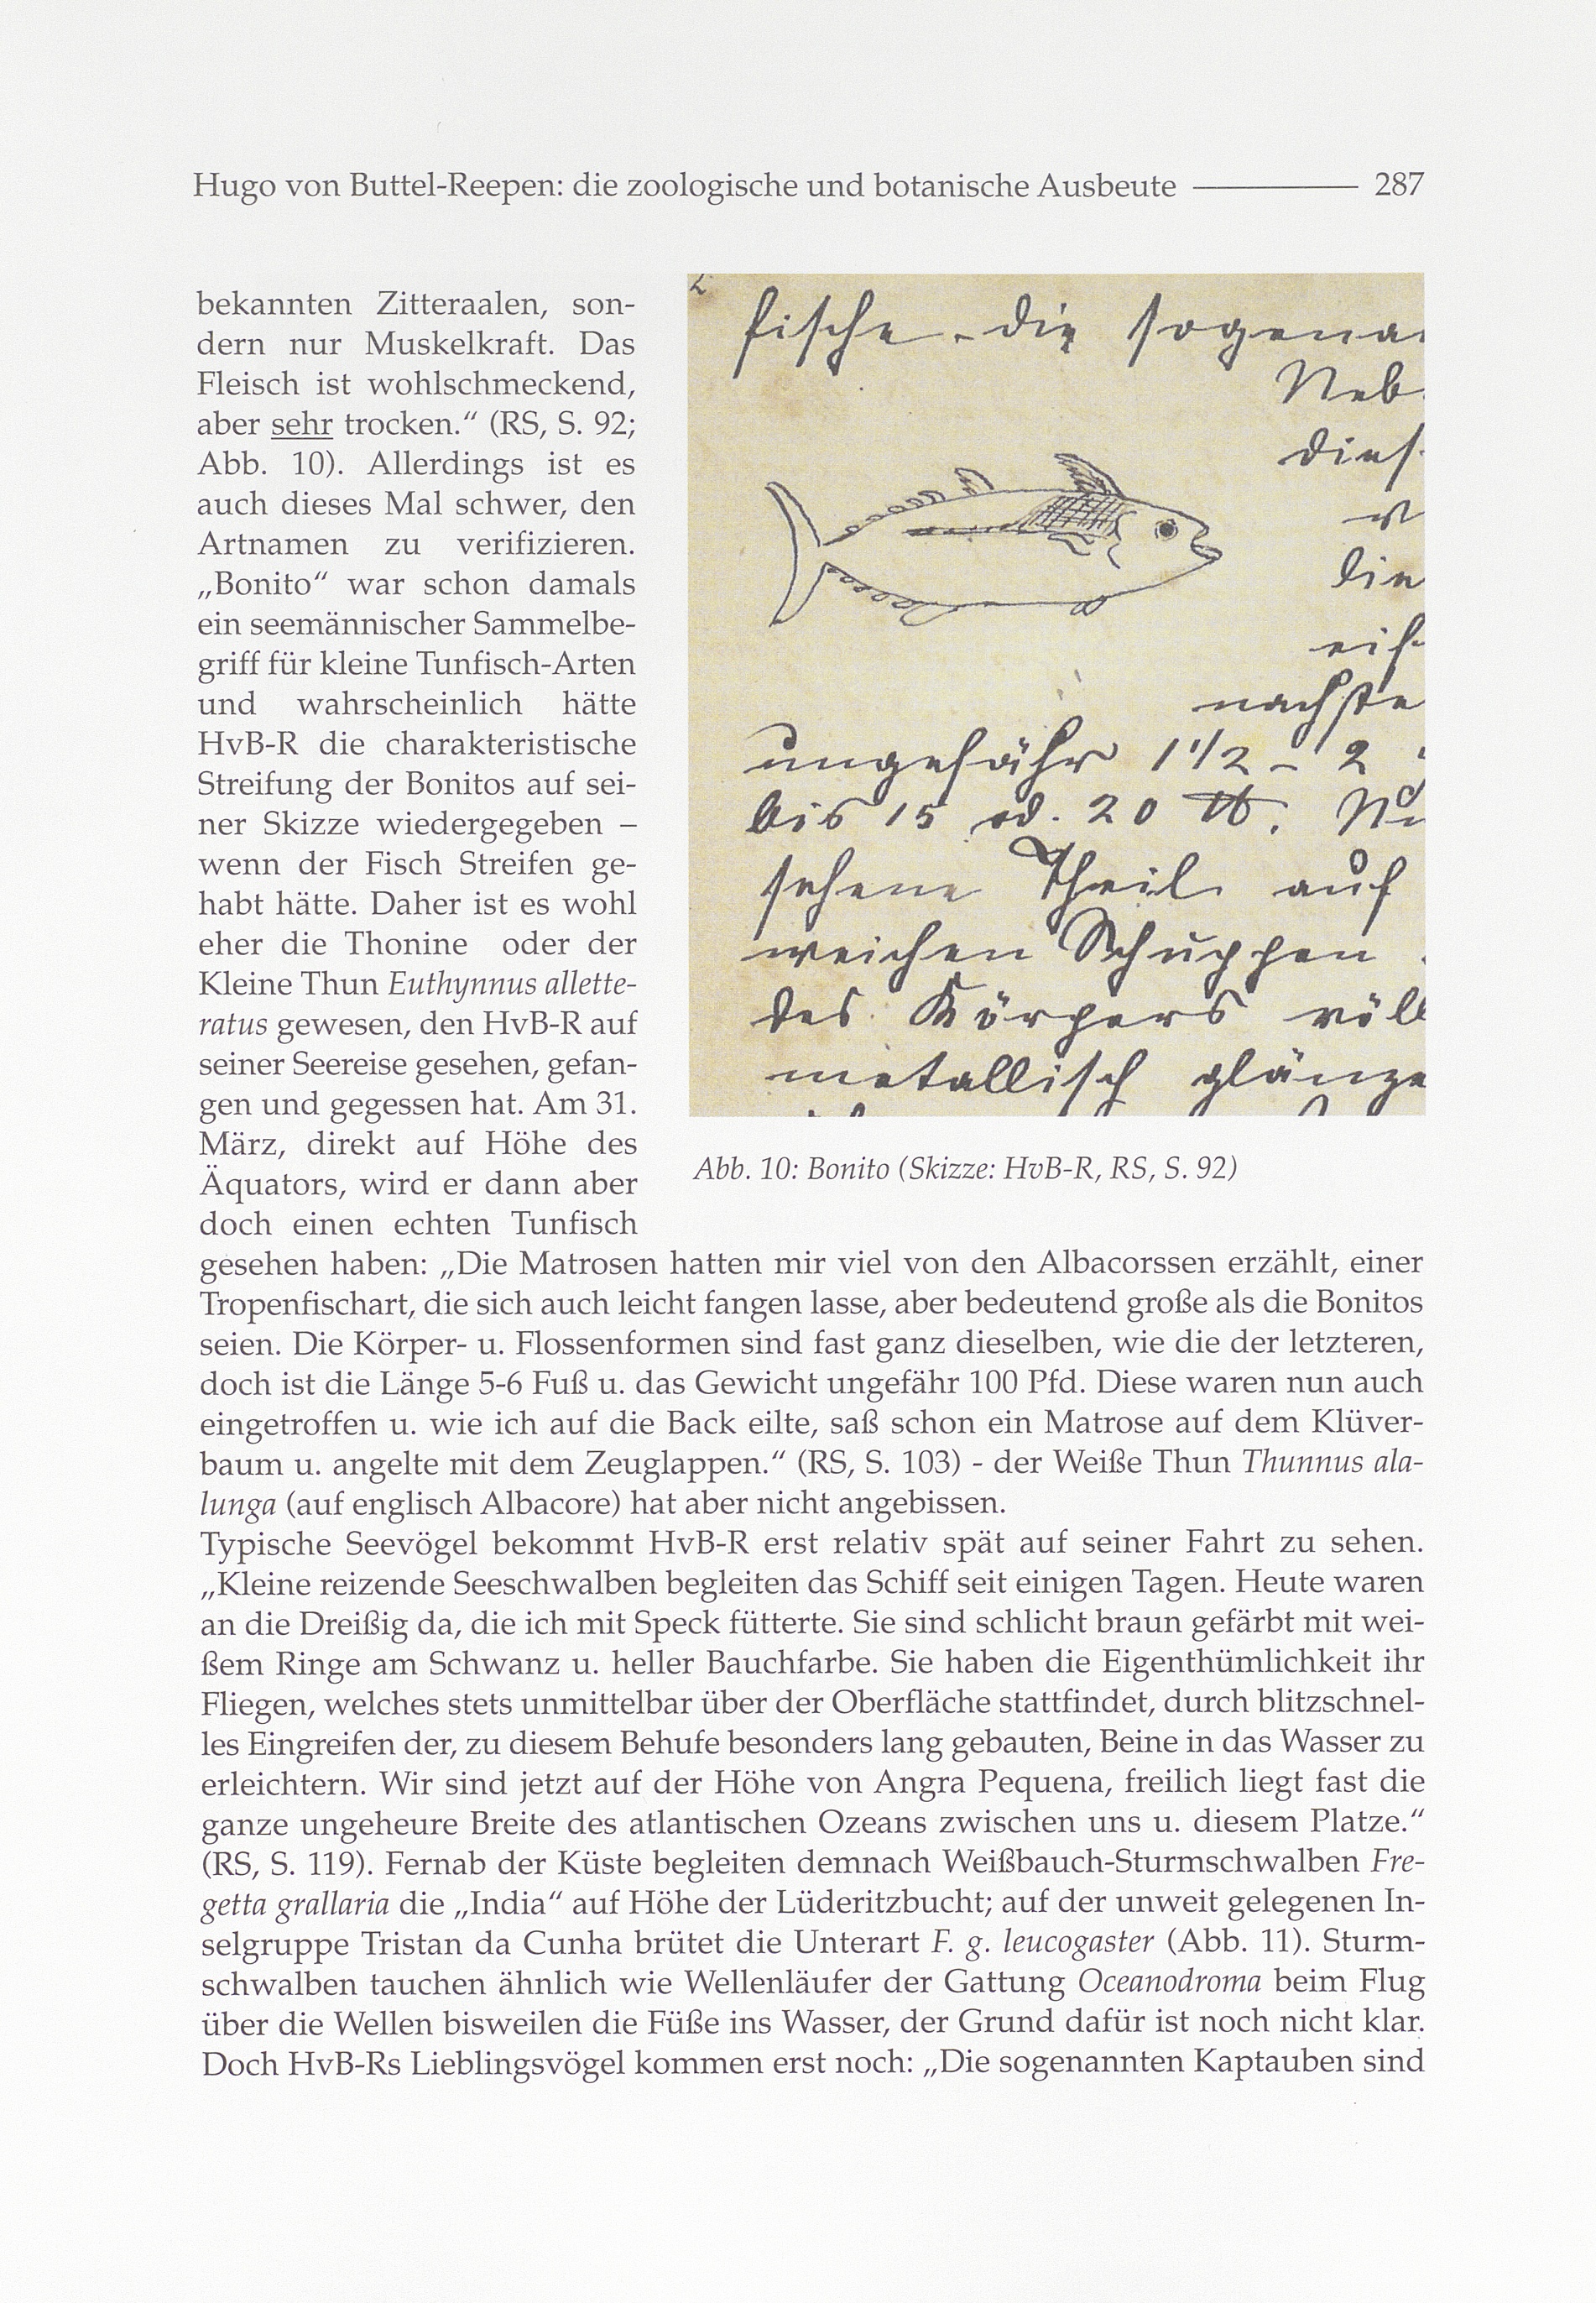 Hugo von Buttel-Reepen: die zoologische und botanische Ausbeute 287
bekannten Zitteraalen, son-
dern nur Muskelkraft. Das
Fleisch ist wohlschmeckend,
aber sehr trocken.“ (RS, S. 92;
Abb. 10). Allerdings ist es
auch dieses Mal schwer, den
Artnamen zu verifizieren.
„Bonito“ war schon damals
ein seemännischer Sammelbe-
griff für kleine Tunfisch-Arten
und wahrscheinlich hätte
HvB-R die charakteristische
Streifung der Bonitos auf sei-
ner Skizze wiedergegeben –
wenn der Fisch Streifen ge-
habt hätte. Daher ist es wohl
eher die Thonine oder der
Kleine Thun Euthynnus allette-
ratus gewesen, den HvB-R auf
seiner Seereise gesehen, gefan-
gen und gegessen hat. Am 31.
März, direkt auf Höhe des
Äquators, wird er dann aber
doch einen echten Tunfisch
fische - die sogena
Neb
dies
die
nachste
ungefähr 1 1/2 - 2
bis 15 od. 20 ℔.
sehene Theil auf
weichen Schuppen
des Körpers völl
metallisch glänze
Abb. 10: Bonito (Skizze: HvB-R, RS, S. 92)
gesehen haben: „Die Matrosen hatten mir viel von den Albacorssen erzählt, einer
Tropenfischart, die sich auch leicht fangen lasse, aber bedeutend große als die Bonitos
seien. Die Körper- u. Flossenformen sind fast ganz dieselben, wie die der letzteren,
doch ist die Länge 5-6 Fuß u. das Gewicht ungefähr 100 Pfd. Diese waren nun auch
eingetroffen u. wie ich auf die Back eilte, saß schon ein Matrose auf dem Klüver-
baum u. angelte mit dem Zeuglappen.“ (RS, S. 103) - der Weiße Thun Thunnus ala-
lunga (auf englisch Albacore) hat aber nicht angebissen.
Typische Seevögel bekommt HvB-R erst relativ spät auf seiner Fahrt zu sehen.
„Kleine reizende Seeschwalben begleiten das Schiff seit einigen Tagen. Heute waren
an die Dreißig da, die ich mit Speck fütterte. Sie sind schlicht braun gefärbt mit wei-
ßem Ringe am Schwanz u. heller Bauchfarbe. Sie haben die Eigenthümlichkeit ihr
Fliegen, welches stets unmittelbar über der Oberfläche stattfindet, durch blitzschnel-
les Eingreifen der, zu diesem Behufe besonders lang gebauten, Beine in das Wasser zu
erleichtern. Wir sind jetzt auf der Höhe von Angra Pequena, freilich liegt fast die
ganze ungeheure Breite des atlantischen Ozeans zwischen uns u. diesem Platze.“
(RS, S. 119). Fernab der Küste begleiten demnach Weißbauch-Sturmschwalben Fre-
getta grallaria die „India“ auf Höhe der Lüderitzbucht; auf der unweit gelegenen In-
selgruppe Tristan da Cunha brütet die Unterart F. g. leucogaster (Abb. 11). Sturm-
schwalben tauchen ähnlich wie Wellenläufer der Gattung Oceanodroma beim Flug
über die Wellen bisweilen die Füße ins Wasser, der Grund dafür ist noch nicht klar.
Doch HvB-Rs Lieblingsvögel kommen erst noch: „Die sogenannten Kaptauben sind